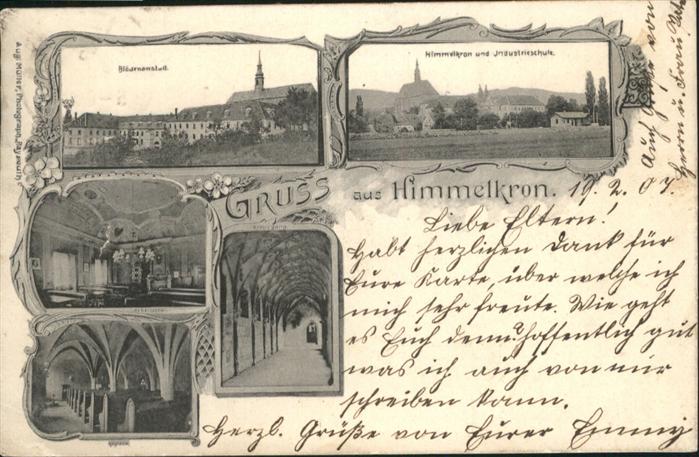 Blödenanstalt.
Himmelkron und Industrieschule.
Aug. Müller, Photograph, Bayreuth
Gruss aus Himmelkron.
Kreuzgang
19. 2. 07.
Liebe Eltern!
Habt herzlichen Dank für
Eure Karte, über welche ich
mich sehr freute. Wie geht
es Euch denn? Hoffentlich gut
was ich auch von mir
schreiben kann.
Herzl. Grüße von Eurer Emmy
von
Herrn u. Frau